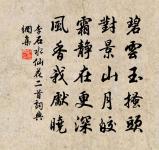 碧雲玉搔頭
對景山月皎
霜靜在更深
風香我獻曉
李石水仙花二首詞典
網集